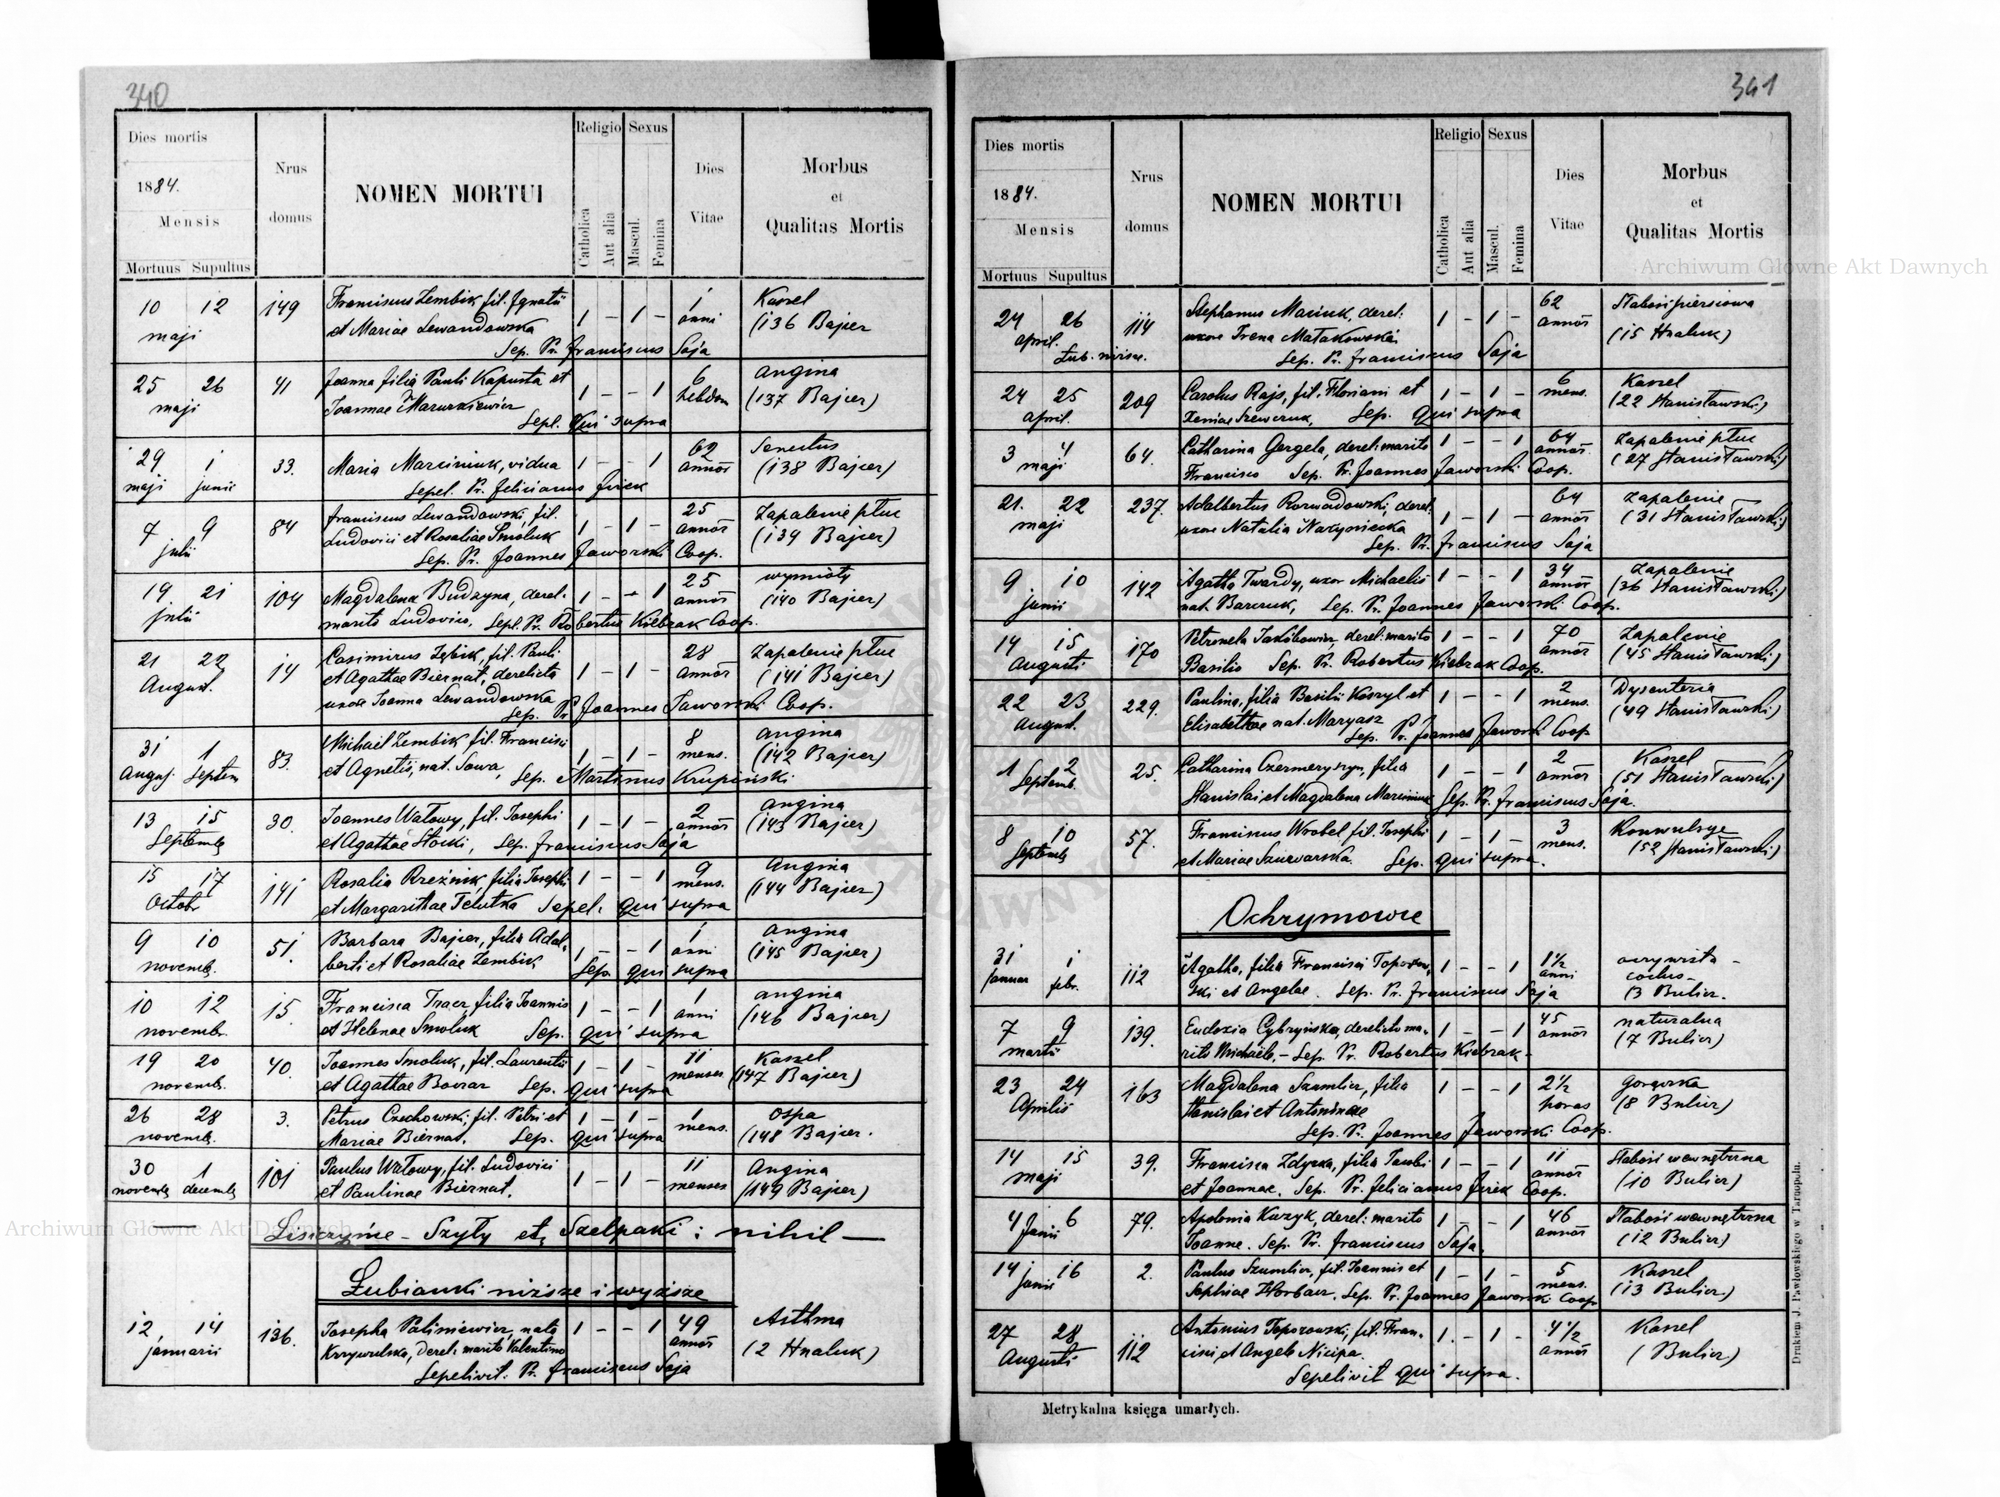 340
Dies mortis
1884.
Mensis
Mortuus Supultus
Nrus
domus
NOMEN MORTUI
Religio Sexus
Catholica
Aut alia
Mascul.
Femina
Dies
Vitae
Morbus
et
Qualitas Mortis
10 12 149 Franciscus Zembik, fil. Ignatii 1 – 1 – 1 Kaszel
maji et Mariae Lewandowska anni (136 Bajier
Sep. Pr. Franciscus Saja
25 26 41 Joanna filia Pauli Kapusta et 1 – – 1 6 angina
maji Joannae Mazurkiewicz hebdom (137 Bajier)
Sepl. Qui supra
29 1 33. Maria Marciniuk, vidua 1 – – 1 62 Senectus
maji junii Sepel. Pr. Felicianus annor (138 Bajier)
7 9 84 Franciscus Lewandowski, fil. 1 – 1 – 25 Zapalenie płuc
julii Ludovici et Rosaliae Smoluk annor (139 Bajier)
Sep. Pr. Joannes Jaworski Coop.
19 21 104 Magdalena Budzyna, derel. 1 – – 1 25 wymioty
julii marito Ludovico, Sepl. Pr. Robertus Kiebzak Coop. annor (140 Bajier)
21 22 14 Casimirus Zębik, fil. Pauli 1 – 1 – 28 Zapalenie płuc
August. et Agathae Biernat, derelicta annor (141 Bajier)
uxore Joanna Lewandowska
Sep. Pr. Joannes Jaworski Coop.
31 1 83. Michael Zembik, fil. Francisci 1 – 1 – 8 angina
August. Septem et Agnetis, nat. Sowa, mens. (142 Bajier)
Sep. Martinus Krupiński
13 15 30. Joannes Watowy, fil. Josephi 1 – 1 – 2 angina
Septemb et Agathae Hocki, Sep. Franciscus Saja annor (143 Bajier)
15 17 141 Rosalia Rzeźnik, filia Josephi 1 – – 1 9 Angina
Octobr et Margarithae Telutka Sepel. qui supra mens. (144 Bajier)
9 10 51. Barbara Bajier, filia Adal- 1 – – 1 1 angina
novemb. berti et Rosaliae Zembik, Sep. qui supra anni (145 Bajier)
10 12 15. Francisca Tracz, filia Joannis 1 – – 1 1 angina
novembr. et Helenae Smoluk Sep. qui supra anni (146 Bajier)
19 20 40. Joannes Smoluk, fil. Laurentii 1 – 1 – 11 Kaszel
novemb. et Agathae Sep. qui supra menses (147 Bajier)
26 28 3. Petrus Czechowski, fil. Petri et 1 – 1 – 1 ospa
novemb. Mariae Biernat. Sep. qui supra mens. (148 Bajier.
30 1 101 Paulus Watowy, fil. Ludovici 1 – 1 – 11 Angina
novemb decemb et Paulinae Biernat. menses (149 Bajier)
Lisieczyńce – Szyły et Szelpaki : nihil —
Łubianki niższe i wyższe
12 14 136. Josepha Paliniewicz, nata 1 – – 1 49 Asthma
januarii Krzywulska, derel. marito Valentino annor (2 Hnaluk)
Sepelivit. Pr. Franciscus Saja
341
Dies mortis
1884.
Mensis
Mortuus Supultus
Nrus
domus
NOMEN MORTUI
Religio Sexus
Catholica
Aut alia
Mascul.
Femina
Dies
Vitae
Morbus
et
Qualitas Mortis
24 26 114 Stephanus Maciuk, derel: 1 – 1 – 62 Słabość piersiowa
april. Łub. niższe. uxore Irena Matakowska annor (15 Hnaluk)
Sep. Pr. Franciscus Saja
24 25 209 Carolus Rajs, fil. Floriani et 1 – 1 – 6 Kaszel
april. Xeniae Szewczuk, Sep. Qui supra mens. (22 Stanisławski)
3 4 64. Catharina Gergela, derel: marito 1 – – 1 64 Zapalenie płuc
maji Francisco Sep. Pr. Joannes Jaworski Coop. annor. (27 Stanisławski)
21. 22 237. Adalbertus Rozwadowski, derel. 1 – 1 – 64 Zapalenie
maji uxore Natalia annor (31 Stanisławski)
Sep. Pr. Franciscus Saja
9 10 142 Agatha Twardy, uxor Michaelis 1 – – 1 34 Zapalenie
junii nat. Barczuk, Sep. Pr. Joannes Jaworski Coop. annor (36 Stanisławski)
14 15 170 Petronela Jakóbowicz, derel: marito 1 – – 1 70 Zapalenie
Augusti Basilio Sep. Pr. Robertus Kiebzak Coop. annor (45 Stanisławski)
22 23 229. Paulina, filia Basilii Koszyl et 1 – – 1 2 Dysenteria
August. Elisabethae nat. Maryasz mens. (49 Stanisławski)
Sep. Pr. Joannes Jaworski Coop
1 2 25. Catharina Czermeryszyn, filia 1 – – 1 2 Kaszel
Septemb. Stanislai et Magdalena Marciniuk Sep. Pr. Franciscus Saja. annor (51 Stanisławski)
8 10 57. Franciscus Wrobel fil. Josephi 1 – 1 – 3 Konwulsye
Septemb et Mariae Szuwarska. Sep. qui supra. mens. (52 Stanisławski)
Ochrymowce
31 1 112 Agatha, filia Francisci Toporow- 1 – – 1 1½
januar febr. ski et Angelae. Sep. Pr. Franciscus Saja anni (3 Bulicz.
7 9 139. Eudoxia Cybryńska, derelicto ma- 1 – – 1 45 naturalna
martii rito Michaele, – Sep. Pr. Robertus Kiebzak – annor (7 Bulicz)
23 24 163 Magdalena Szumlicz, filia 1 – – 1 2½ gorączka
Aprilis Stanislai et Antoninae horas (8 Bulicz)
Sep. Pr. Joannes Jaworski Coop.
14 15 39. Francisca Zdyrka, filia Jacobi 1 – – 1 11 Słabość wewnętrzna
maji et Joannae. Sep. Pr. Felicianus Coop. annor (10 Bulicz)
4 6 79. Apolonia Kuzyk, derel: marito 1 – – 1 46 Słabość wewnętrzna
Junii Joanne. Sep. Pr. Franciscus Saja. annor (12 Bulicz)
14 16 2. Paulus Szumlicz, fil. Joannis et 1 – 1 – 5 Kaszel
junii Sophiae Horbacz. Sep. Pr. Joannes Jaworski Coop mens. (13 Bulicz)
27 28 112 Antonius Toporowski, fil. Fran- 1 – 1 – 4½ Kaszel
Augusti cisci et Angela Nicipa. annor (Bulicz)
Sepelivit qui supra.
Metrykalna księga umarłych.
Drukiem J. Pawłowskiego w Tarnopolu.
Archiwum Główne Akt Dawnych
Archiwum Główne Akt Dawnych